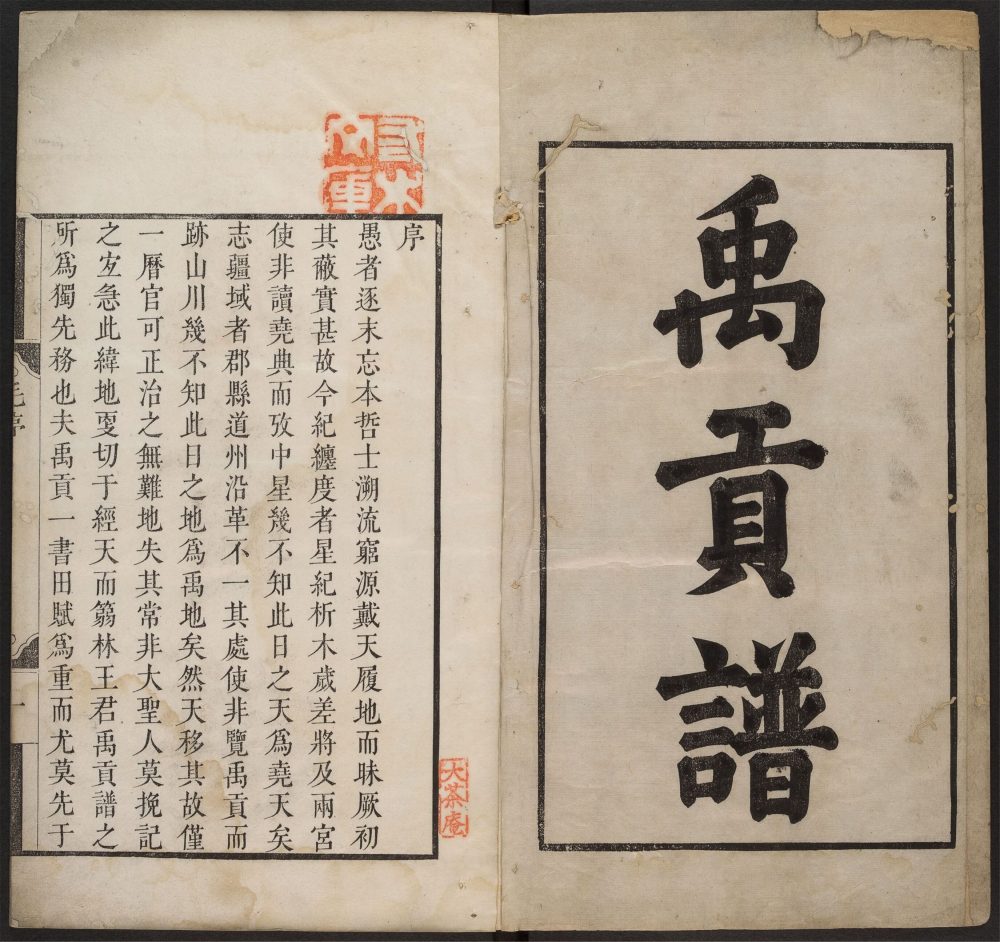 禹貢譜
序
愚者逐末忘本哲士溯流窮源戴天履地而昧厥初
其蔽實甚故今紀纏度者星紀析木歲差將及兩宮
使非讀堯典而攷中星幾不知此日之天爲堯天矣
志疆域者郡縣道州沿革不一其處使非覽禹貢而
跡山川幾不知此日之地爲禹地矣然天移其故僅
一曆官可正治之無難地失其常非大聖人莫挽記
之宐急此緯地更切于經天而篛林王君禹貢譜之
所爲獨先務也夫禹貢一書田賦爲重而尤莫先于
大茶庵